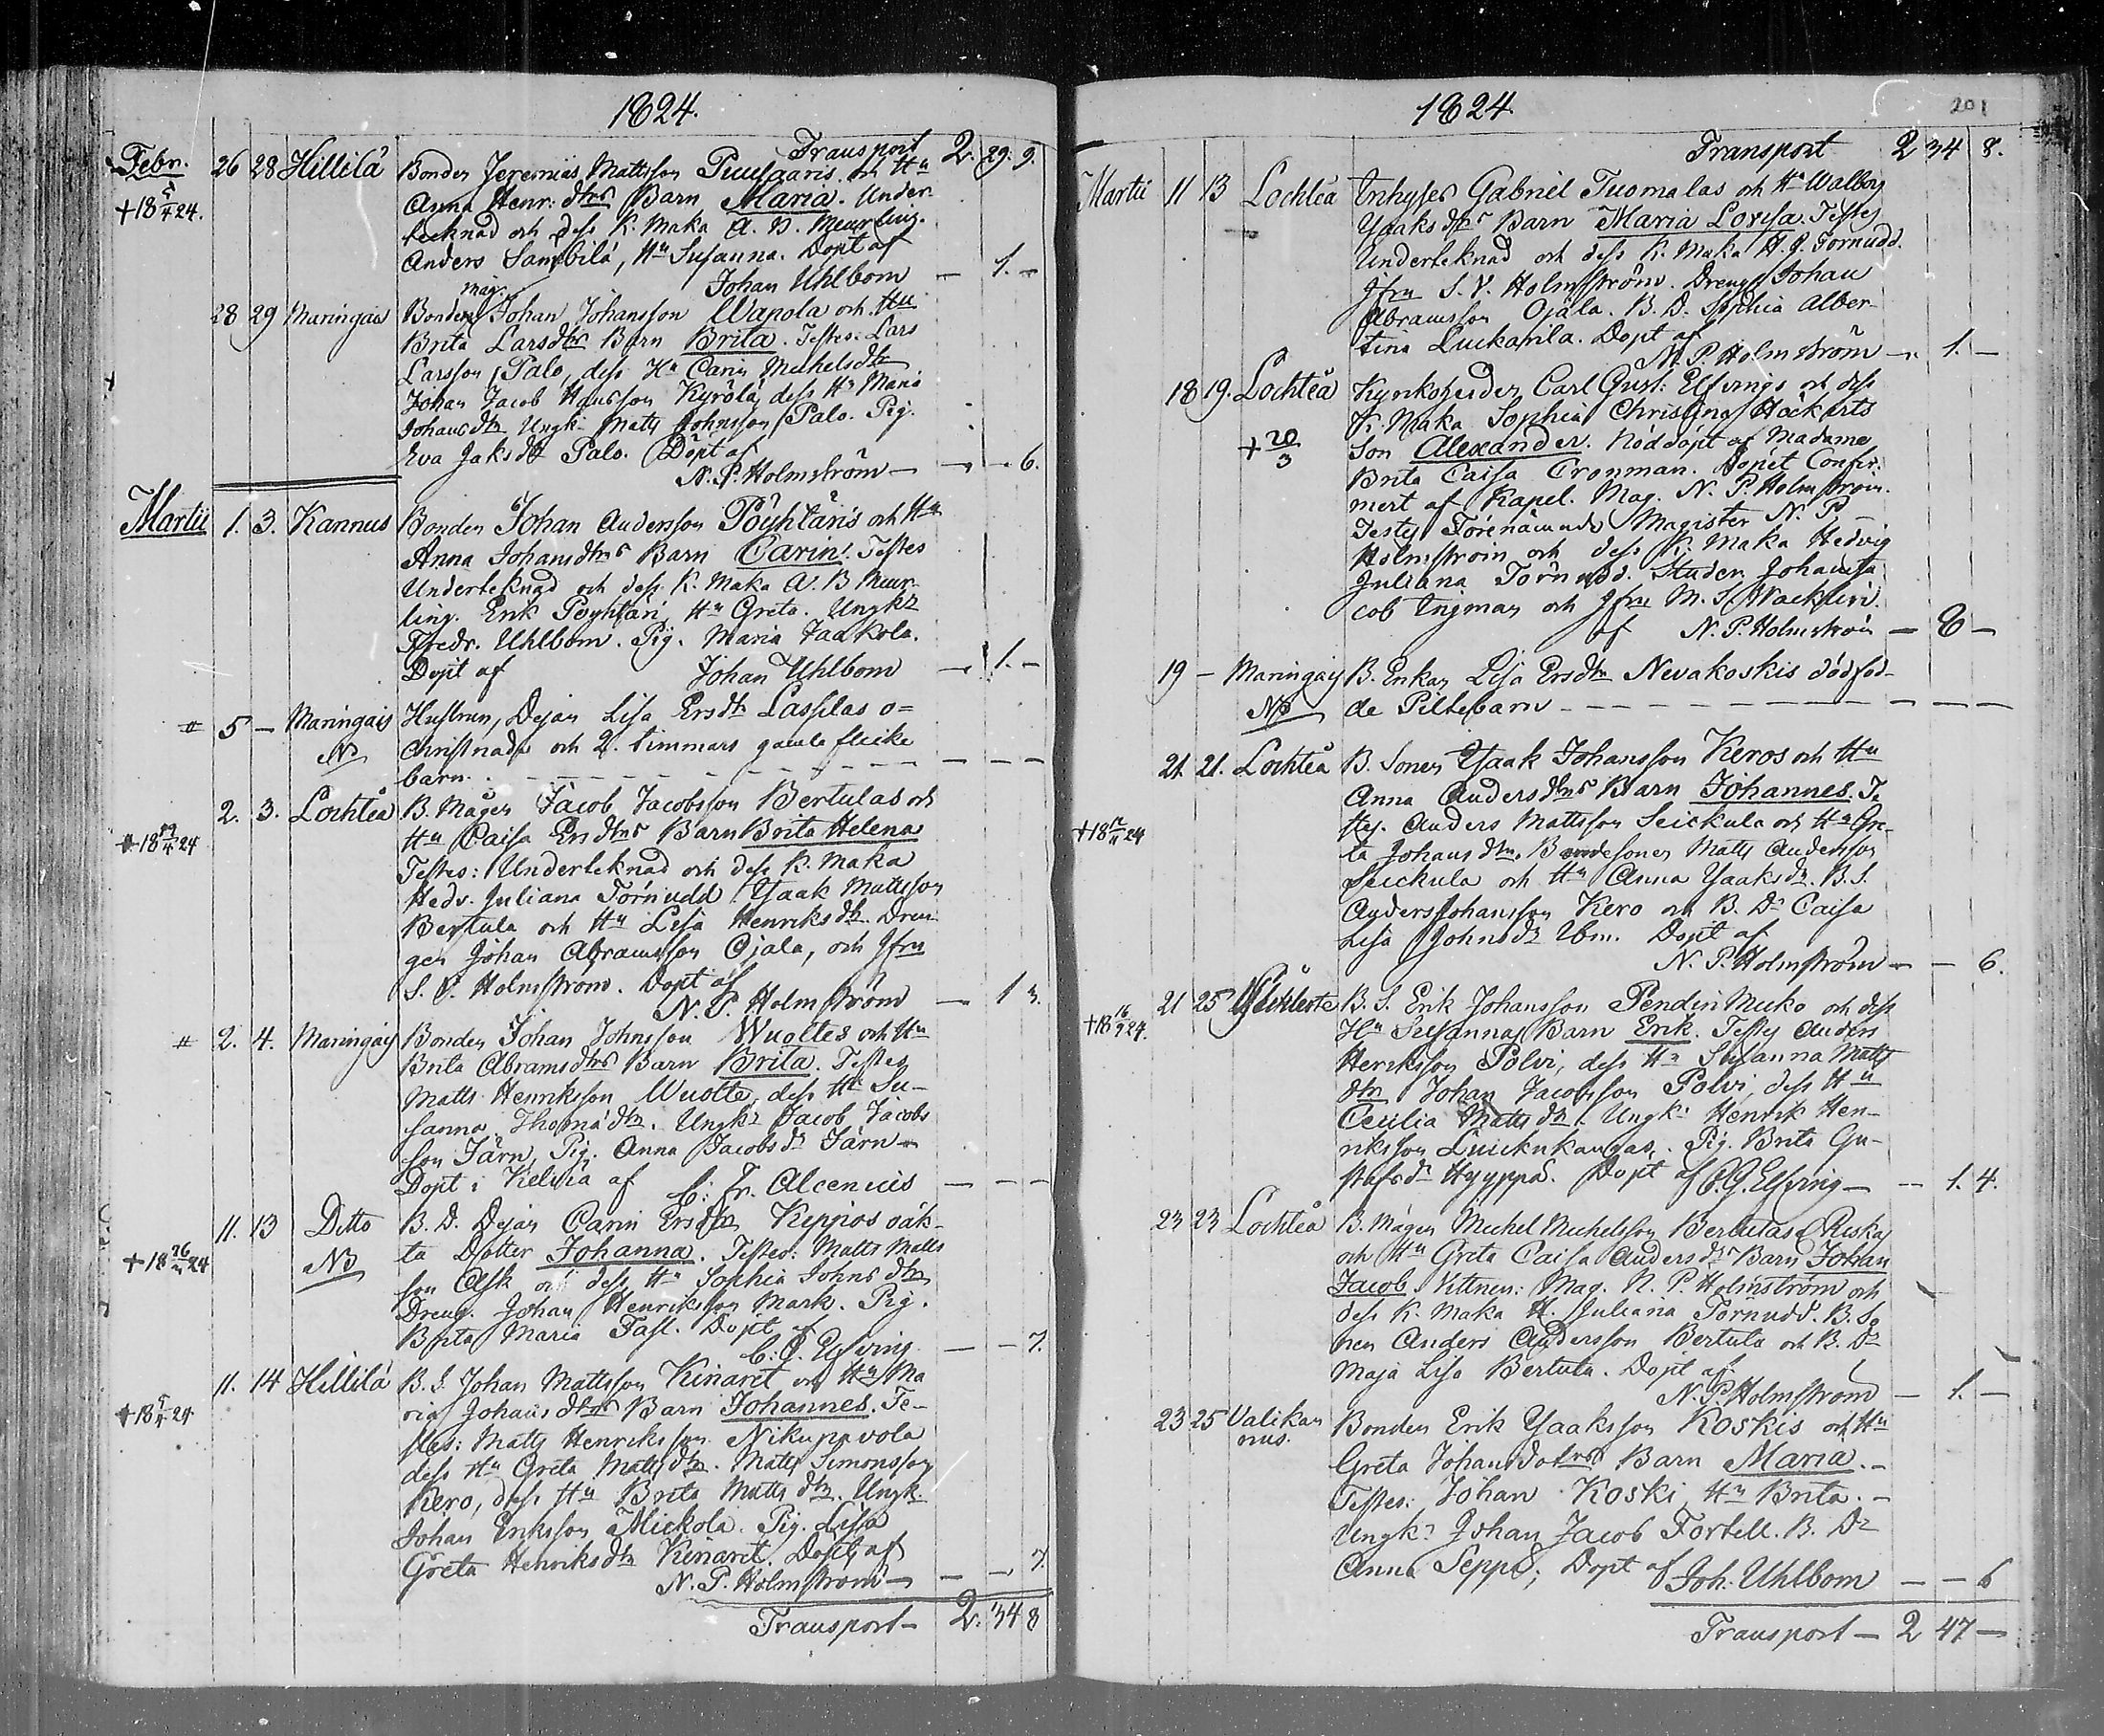 1824.
Transport 2. 29. 9.
Febr. 26 28 Hillilä Bonden Jeremias Mattsson Puusaaris och Hu
+18 5/4 24. Anna Henr: dtrs Barn Maria. Under-
tecknad och dess K. Maka A. B. Meurling.
Anders Sambilä, Hu Susanna. Döpt af
Johan Uhlbom — 1. —
mag.
28 29 Maringais Bonden Johan Johansson Wapola och Hu
Brita Larsdtrs Barn Brita. Testes: Lars
Larsson Palo, dess Hu Carin Michelsdtr
Johan Jacob Hansson Kyrölä, dess Hu Maria
Johansdtr Ungk. Matts Johnsson Palo. Pig.
Eva Jaksdtr Palo. Döpt af
N. P. Holmström — — — 6.
Martii 1. 3. Kannus Bonden Johan Andersson Pöyhtäris och Hu
Anna Johansdtrs Barn Carin. Testes
Underteknad och dess K. Maka A. B Meur-
ling. Erik Pöyhtäri, Hu Greta. Ungkr
Fredr. Uhlbom. Pig. Maria Jaakola.
Döpt af Johan Uhlbom — 1. —
# 5 — Maringais Hustrun, Dejan Lisa Ersdtr Lassilas o=
N christnade och 2. timmars gamla flicke
barn. — — — — — —
2. 3. Lochteå B. Mågen Jacob Jacobsson Bertulas och
+18 24 Hu Caisa Ersdtrs Barn Brita Helena
Testes: Underteknad och dess K. Maka
Hedv. Juliana Törnudd Ysaak Mattsson
Bertula och Hu Lisa Henriksdtr. Dren-
gen Johan Abramsson Ojala, och Jfru
S. V. Holmström. Döpt af
N. P. Holmström — 1 3.
# 2. 4. Maringais Bonden Johan Johnsson Wuoltes och Hu
Brita Abramsdtrs Barn Brita. Testes
Matts Henriksson Wuolte, dess Hu Su-
sanna Thomädtr. Ungkr Jacob Jacobs
son Järn, Pig. Anna Jacobsdr Järn —
Döpt i Kelviå af C: Fr. Alcenius — — —
11. 13 Ditto B. D. Dejan Carin Ersdtr Keppos oäk-
+18 24 NB ta Dotter Johanna. Testes: Matts Matts
son Ask och dess Hu Sophia Johnsdtr
Dreng. Johan Henriksson Mark. Pig.
Brita Maria Fast. Döpt af
C. G. Elfving — — 7.
11. 14 Hillilä B. S. Johan Mattsson Kinaret och Hu Ma
+18 24. ria Johansdtrs Barn Johannes. Te-
stes: Matts Henriksson Nikupavola
dess Hu Greta Mattsdtr. Matts Simonsson
Kero, dess Hu Brita Mattsdtr. Ungk.
Johan Eriksson Mickola. Pig. Lisa
Greta Henriksdtr Kinaret. Döpt af
N. P. Holmström — — — 7.
Transport — 2. 34 8
1824. 201
Transport 2 34 8.
Martii 11 13 Lochteå Inhyses Gabriel Tuomalas och Hu Walborg
Ysaksdtrs Barn Maria Lovisa. Testes
Underteknad och dess K. Maka H. J. Törnudd.
Jfru S. V. Holmström. Dreng Johan
Abramsson Ojala. B. D. Sophia Alber-
tina Luckarila. Döpt af
N. P. Holmström — 1. —
18 19. Lochteå Kyrkoherden Carl Gust: Elfvings och dess
+ 20/3 K. Maka Sophia Christina Häckerts
Son Alexander. Nöddöpt af Madame
Brita Caisa Cronman. Döpet Confir-
mert af Kapel. Mag. N. P. Holmström.
Testes Förenämnde Magister N. P
Holmström och dess K. Maka Hedvig
Juliana Törnudd. Studer. Johan Ja
cob Ingman och Jfru M. S. Wacklin.
af N. P. Holmström — 8 —
19 — Maringais B. Enkan Lisa Ersdtr Nevakoskis dödföd-
NB de Piltebarn — — — — — —
21. 21. Lochteå B. Sonen Ysaak Johansson Keros och Hu
Anna Andersdtrs Barn Johannes. Te
+18 24 stes. Anders Mattsson Seickula och Hu Gre-
ta Johansdtr. Bondesonen Matts Andersson
Seickula och Hu Anna Ysaksdr. B. S.
Anders Johansson Kero och B. Dr Caisa
Lisa Johnsdr Ibm. Döpt af
N. P. Holmström — — 6.
21 25 B. S. Erik Johansson Pendin Muko och dess
+18 16/9 24. Hu Susannas Barn Erik. Testes Anders
Henriksson Polvi, dess Hu Susanna Matts
dtr. Johan Jacobsson Polvi, dess Hu
Cecilia Mattsdtr. Ungk: Henrik Hen-
riksson Luickukangas. Pig. Brita Gu-
stafsdr Hyyppä. Döpt af C. G. Elfving — — 1. 4.
23 23 Lochteå B. Mågen Michel Michelsson Bertulas Riska
och Hu Greta Caisa Andersdrs Barn Johan
Jacob Vittnen: Mag. N. P. Holmström och
dess K. Maka H. Juliana Törnudd. B. So
nen Anders Andersson Bertula och B. Dr
Maja Lisa Bertula. Döpt af
N. P. Holmström — 1. —
23 25 Välikan Bonden Erik Ysaksson Koskis och Hu
nus. Greta Johansdotrs Barn Maria. —
Testes: Johan Koski, Hu Brita. —
Ungkr Johan Jacob Fortell. B. Dr
Anna Seppä, Döpt af Joh. Uhlbom — — 6
Transport — 2 47 —